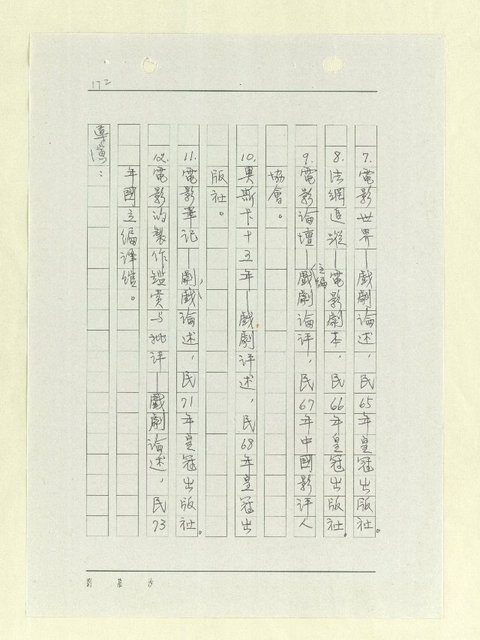 172
7.電影世界—戲劇論述,民65年皇冠出版社。
8.法網追蹤—電影劇本,民66年皇冠出版社。
9.電影論壇—主編戲劇論評,民67年中國影評人
協會。
10.奧斯卡十三年—戲劇評述,民68年皇冠出
版社。
11.電影筆记—劇戲論述,民71年皇冠出版社。
12.電影的製作鑑賞与批评—戲劇論述,民73
年國立編译馆。
導演: